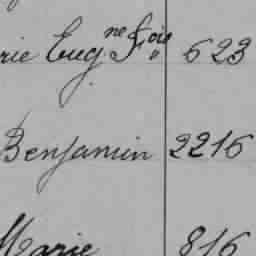 rie Eug.ne F.oie 623
Benjamin 2216
Marie 816